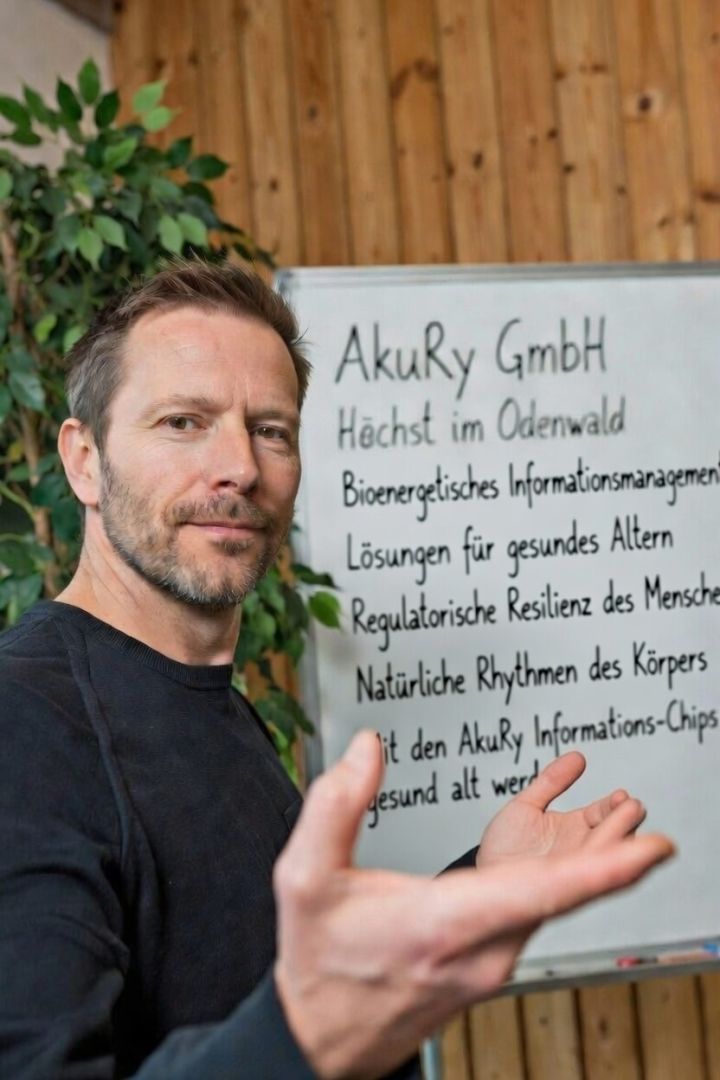 AkuRy GmbH
Höchst im Odenwald
Bioenergetisches Informationsmanagement
Lösungen für gesundes Altern
Regulatorische Resilienz des Mensche
Natürliche Rhythmen des Körpers
it den AkuRy Informations-Chips
gesund alt werd